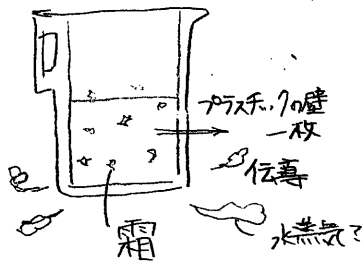 プラスチックの壁
一枚
伝導
霜
水蒸気?